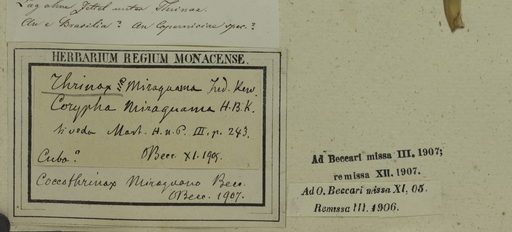 Lag ohne Zettel unter Thrinax.
An e Brasilia? An Coperniciae spec.?
HERBARIUM REGIUM MONACENSE.
Thrinax Miraguama Hrd. Kew.
Corypha Miraguama H.B.K.
Mart. H. n. P. III. p. 243.
Cuba?
Becc. XI. 1905.
Coccothrinax Miraguano Becc.
OBecc. 1907.
Ad Beccari missa III. 1907;
remissa XII. 1907.
Ad O. Beccari missa XI. 05.
Remissa III. 1906.